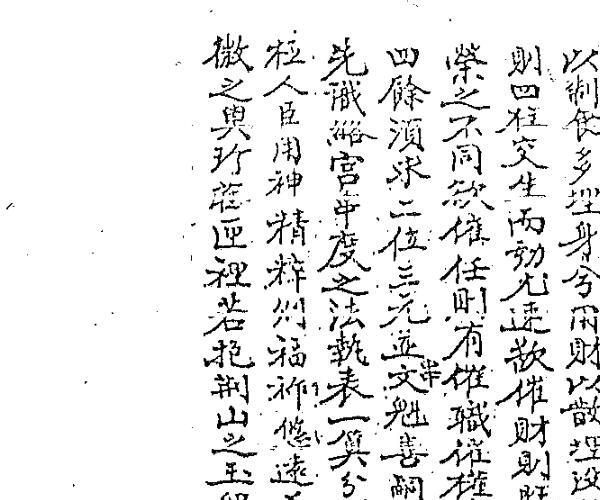 以制食多埋身兮用財以散埋没
則四柱交生而勃尤速歎催財則
榮之不同欲催任則有催職催權
四餘須求二位三元並文魁喜嗣
先識 宮 度之法執表一算分
柱人臣用神精粹則福祚悠遠
微之與珍 匣裡若抱荆山之玉